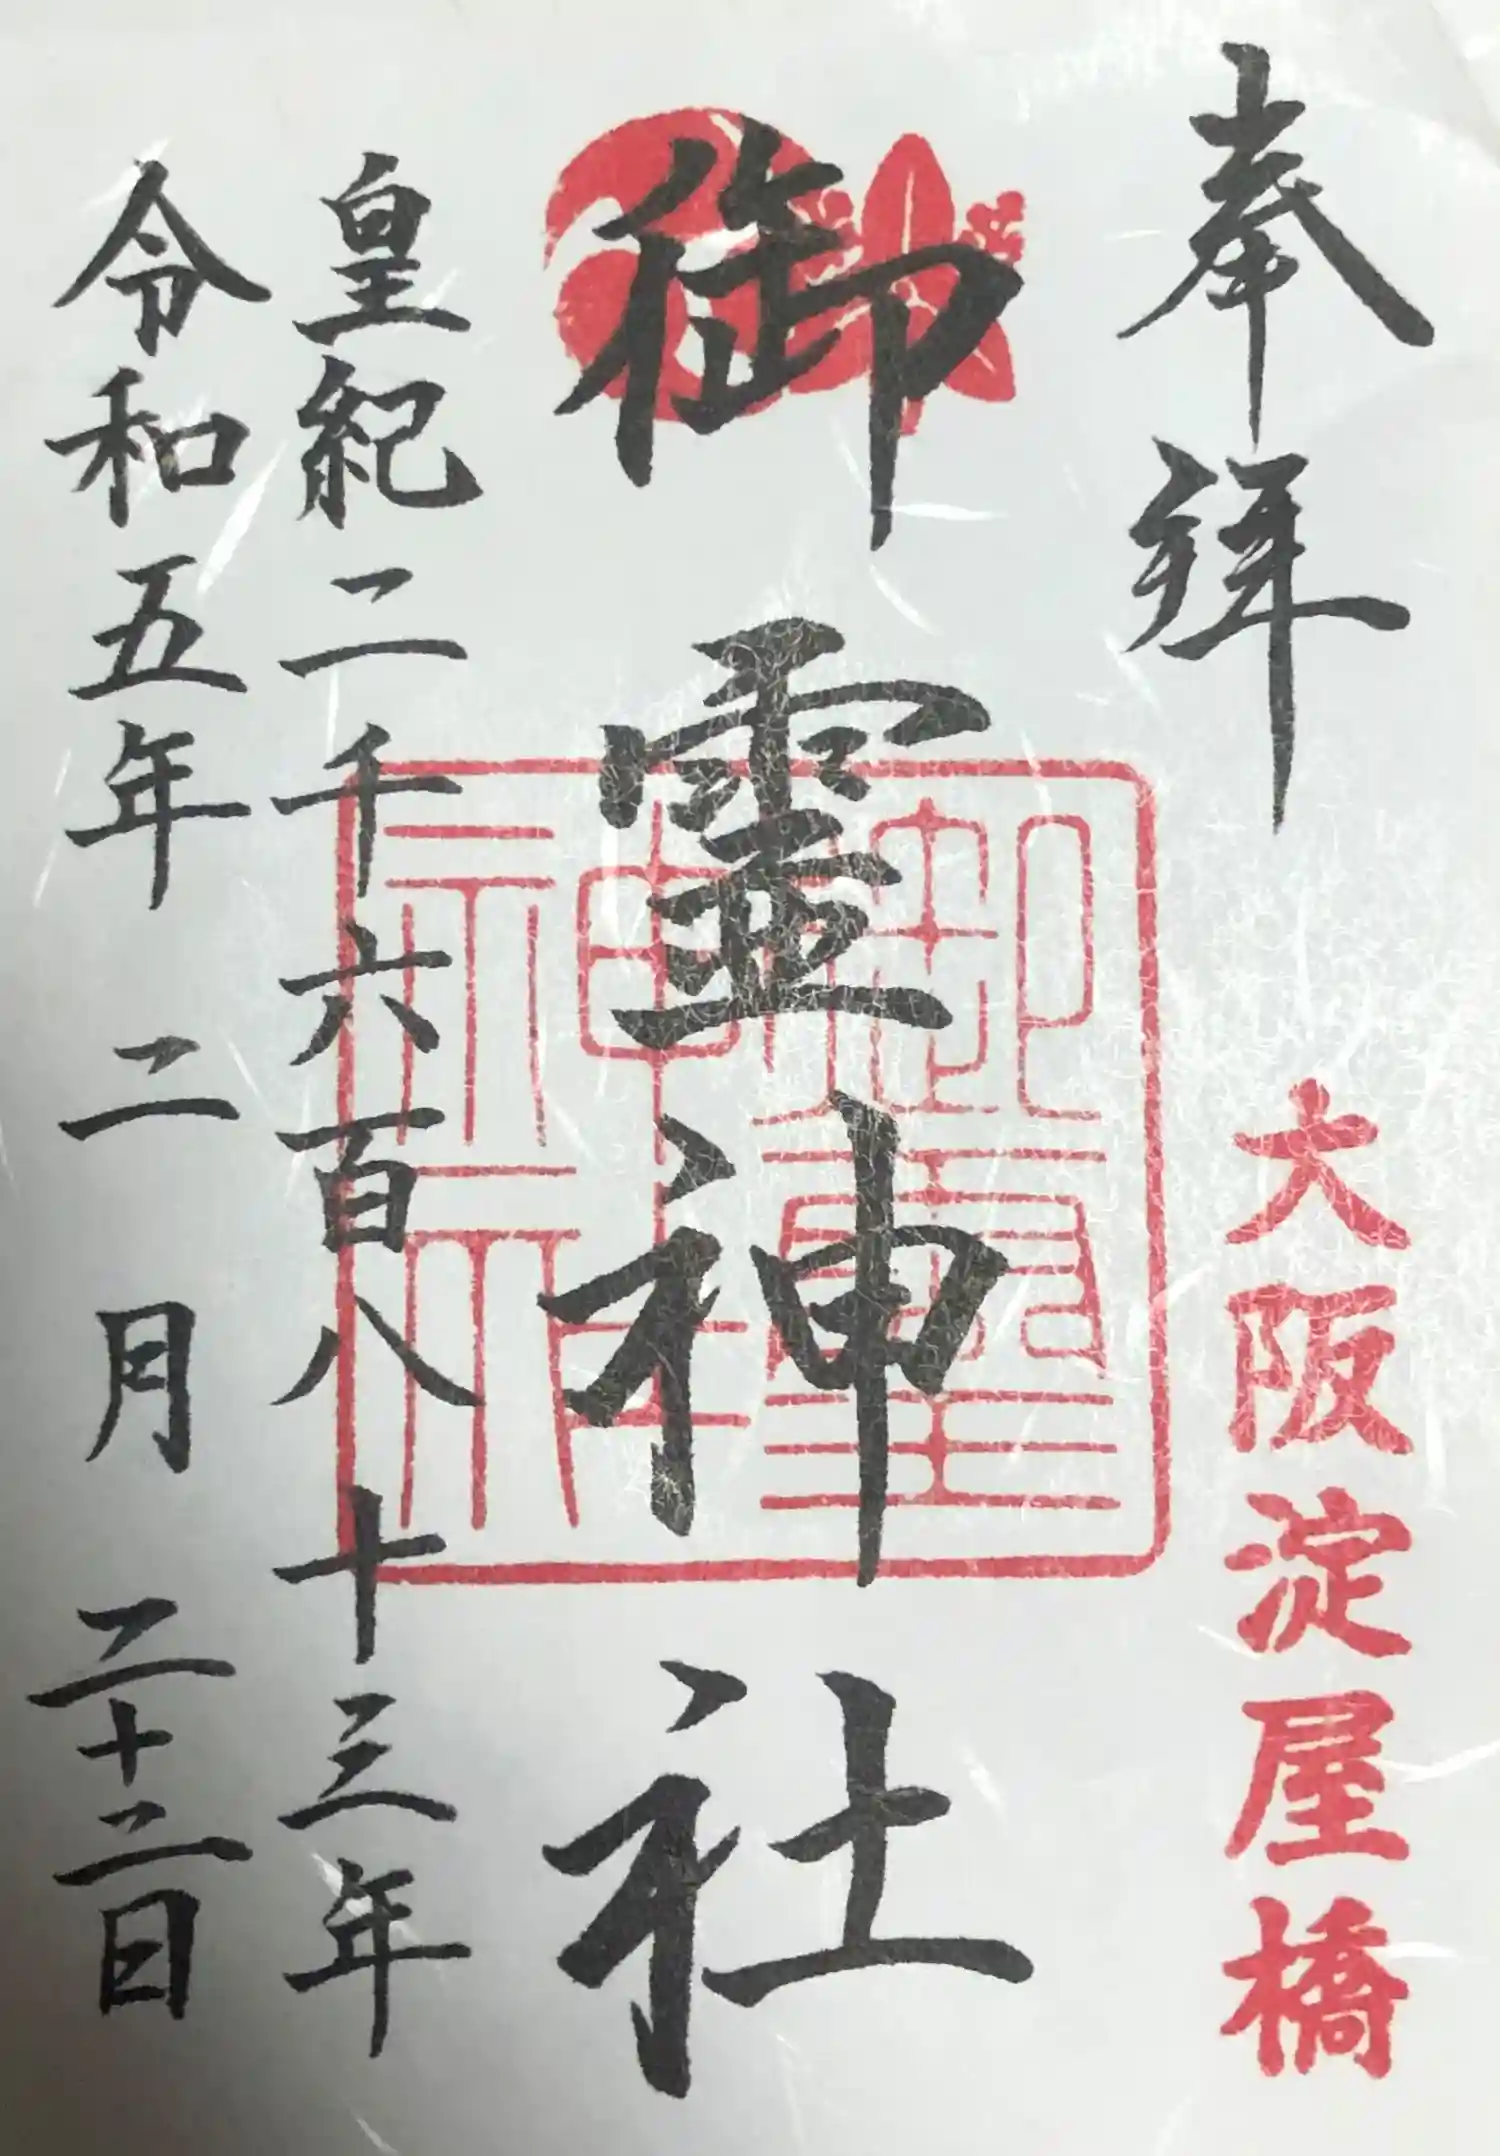 奉拝
大阪淀屋橋
御霊神社
御霊神社
皇紀二千六百八十三年
令和五年 二月 二十二日